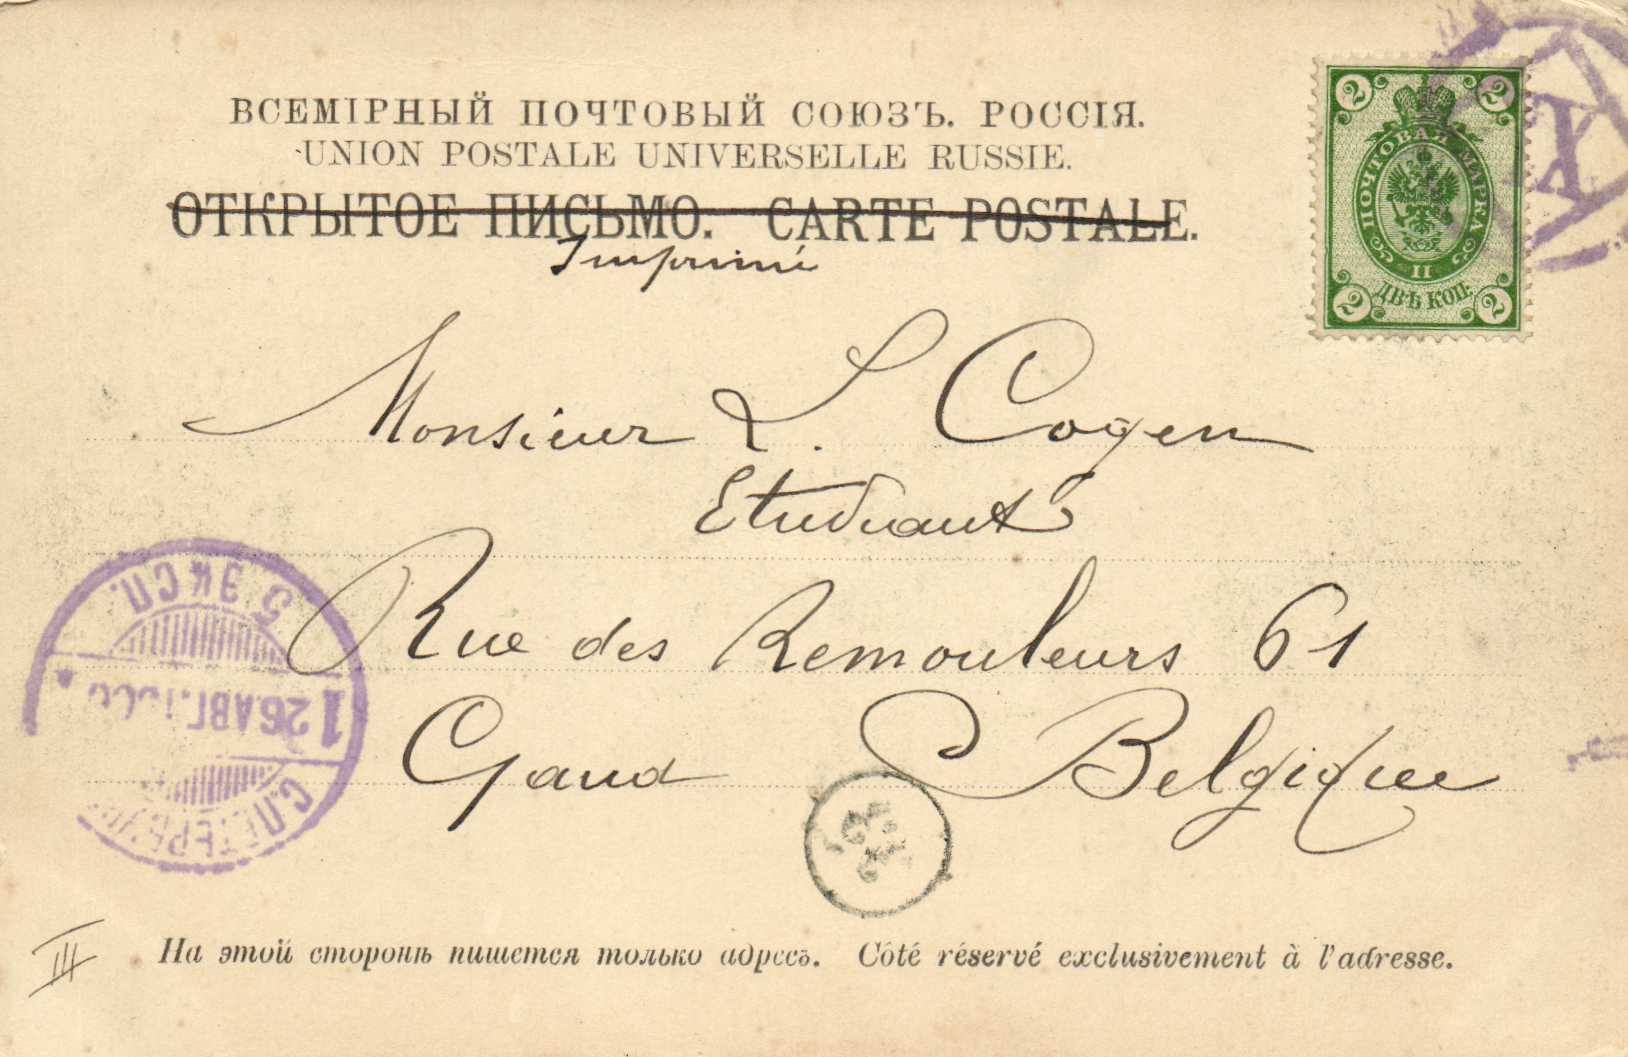 ВСЕМІРНЫЙ ПОЧТОВЫЙ СОЮЗЪ. РОССІЯ.
UNION POSTALE UNIVERSELLE RUSSIE.
ОТКРЫТОЕ ПИСЬМО. CARTE POSTALE.
Imprimé
2 2
ПОЧТОВАЯ МАРКА
II
ДВѢ КОП.
2 2
X
Monsieur L. Cogen
Etudiant
Rue des Remouleurs 61
Gand Belgique
5 ЭКСП.
1 26 АВГ.
С.ПЕТЕРБУ
III
На этой сторонѣ пишется только адресъ. Côté réservé exclusivement à l'adresse.